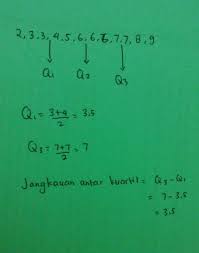 2, 3, 3, 4, 5, 6, 6, 6, 7, 7, 8, 9
Q₁ Q₂ Q₃
Q₁ = 3+4/2 = 3,5
Q₃ = 7+7/2 = 7
Jangkauan antar kuartil = Q₃ - Q₁
= 7 - 3,5
= 3,5